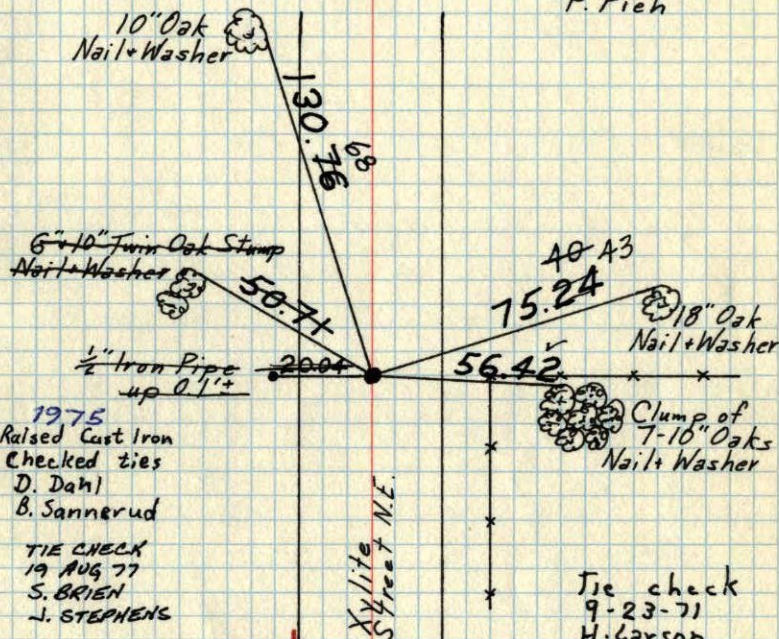 P. Pieh
10" Oak
Nail + Washer
130.76
68
6"+10" Twin Oak Stump
Nail + Washer
50.71
40 43
75.24
18" Oak
Nail + Washer
1/2" Iron Pipe
up 0.1'±
20.04
56.42
Clump of
7-10" Oaks
Nail + Washer
1975
Raised Cast Iron
Checked ties
D. Dahl
B. Sannerud
TIE CHECK
19 AUG 77
S. BRIEN
J. STEPHENS
Xylite
Street N.E.
Tie check
9-23-71
H. Larson